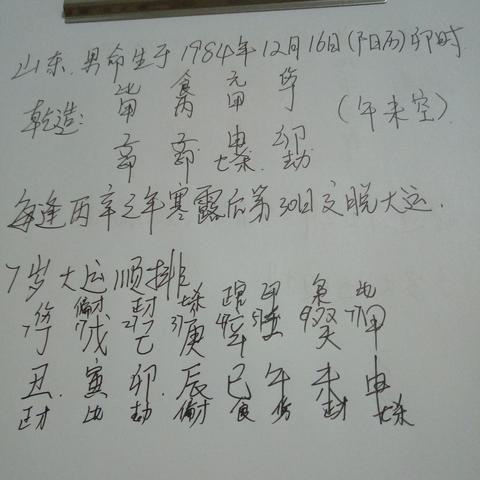 山东.男命生于1984年12月16日(阳历)卯时
比 食 元 伤
乾造: 甲 丙 甲 丁 (午未空)
子 子 申 卯
印 印 七杀 劫
每逢丙辛之年寒露后第30日交脱大运.
7岁大运顺排
伤 偏才 正才 七杀 正官 印 枭 比
丁 戊 己 庚 辛 壬 癸 甲
丑 寅 卯 辰 巳 午 未 申
正才 比 劫 偏才 食 伤 正才 七杀